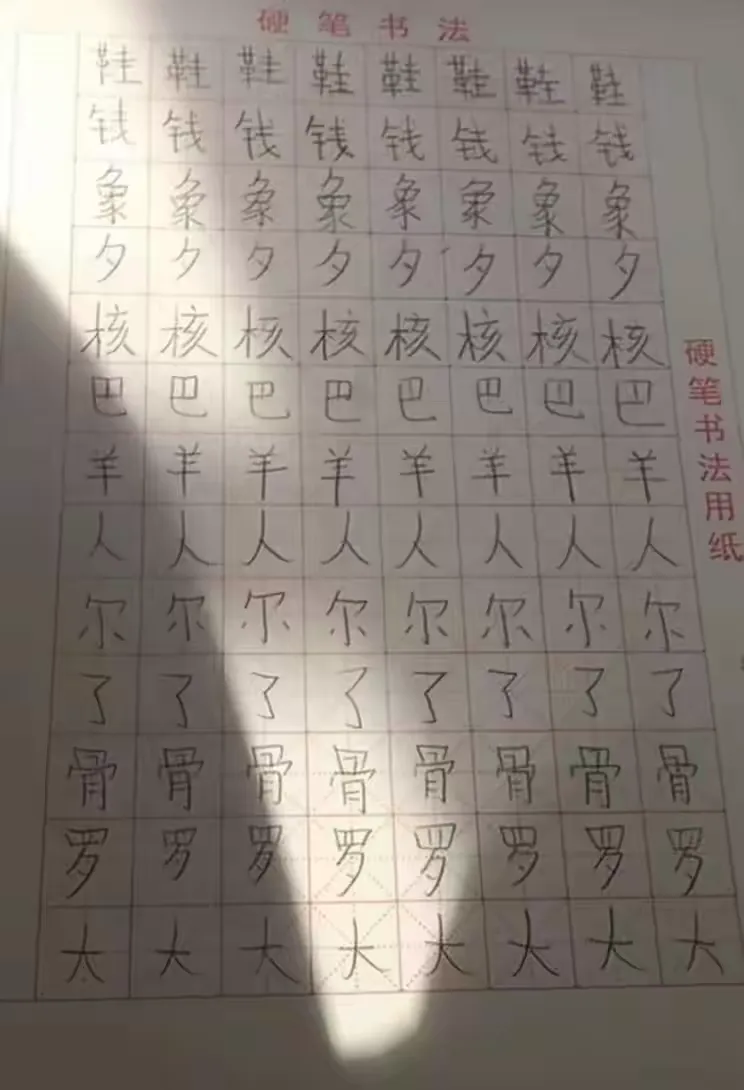 硬笔书法
鞋鞋鞋鞋鞋鞋鞋鞋
钱钱钱钱钱钱钱钱
象象象象象象象象
夕夕夕夕夕夕夕夕
核核核核核核核核
巴巴巴巴巴巴巴巴
羊羊羊羊羊羊羊羊
人人人人人人人人
尔尔尔尔尔尔尔尔
了了了了了了了了
骨骨骨骨骨骨骨骨
罗罗罗罗罗罗罗罗
大大大大大大大大
硬笔书法用纸